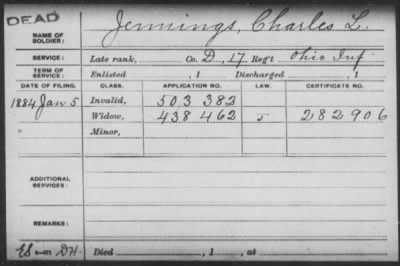 DEAD
NAME OF SOLDIER: Jennings, Charles L.
SERVICE: Late rank, Co. D, 17 Reg't Ohio Inf.
TERM OF SERVICE: Enlisted , 1 Discharged , 1
DATE OF FILING. CLASS. APPLICATION NO. LAW. CERTIFICATE NO.
1884 Jan 5 Invalid, 503 382
Widow, 438 462 282 906
Minor,
ADDITIONAL SERVICES:
REMARKS:
Died , 1 , at